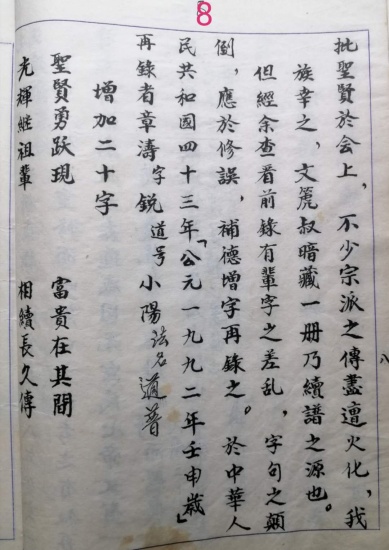 8
批聖賢於会上，不少宗派之傳盡遭火化，我
族幸之，文篪叔暗藏一册乃續譜之源也。
但經余查看前錄有輩字之差乱，字句之顛
倒，應於修誤，補德增字再錄之。於中華人
民共和國四十三年「公元一九九二年壬申歲」
再錄者章濤字銳道号小陽法名道普
增加二十字
聖賢勇跃現 富貴在其間
光輝継祖輩 相續長久傳
八